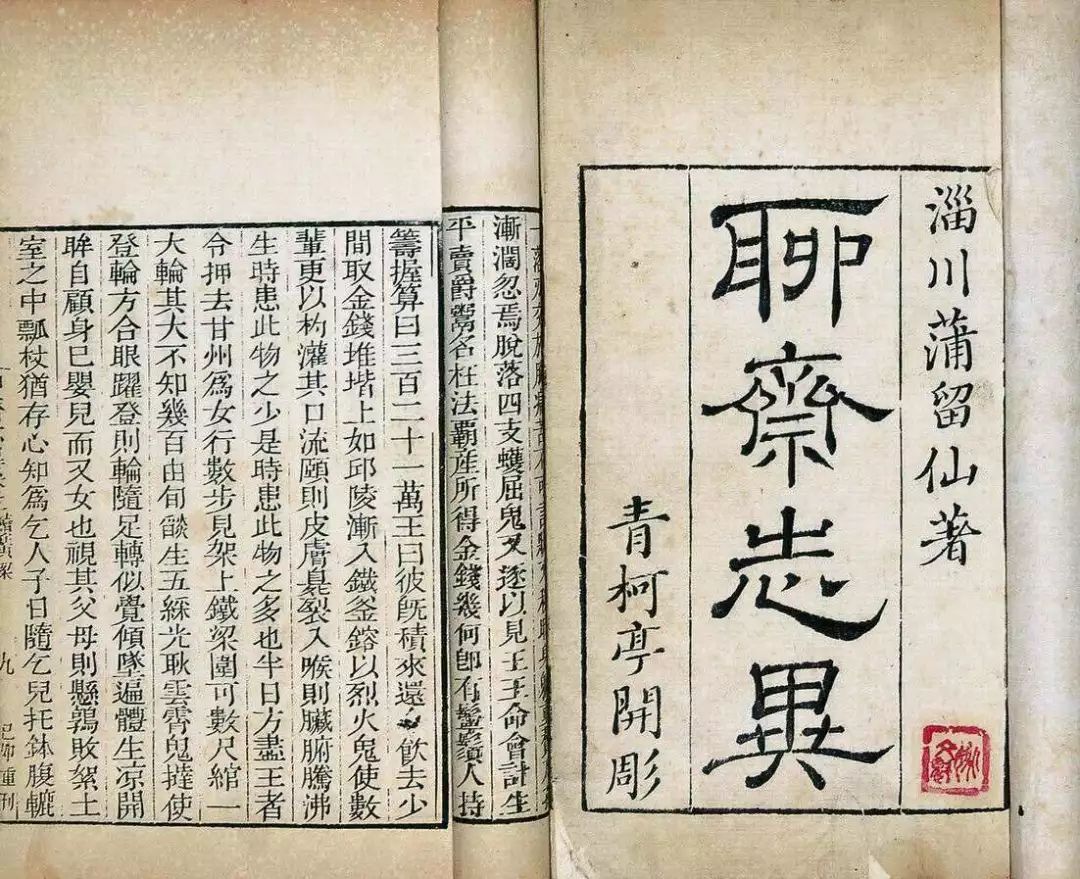 淄川蒲留仙著
聊齋志異
青柯亭開彫
漸濶忽焉脫落四支蠖屈鬼又逐以見王王命會計生
平賣爵鬻名枉法霸產所得金錢幾何卽有鬡鬚人持
籌握算曰三百二十一萬王曰彼旣積來還飲去少
間取金錢堆堦上如邱陵漸入鐵釜鎔以烈火鬼使數
輩更以杓灌其口流頤則皮膚臭裂入喉則臟腑騰沸
生時患此物之少是時患此物之多也半日方盡王者
令押去甘州爲女行數步見架上鐵梁圍可數尺綰一
大輪其大不知幾百由旬燄生五綵光耿雲霄鬼撻使
登輪方合眼躍登則輪隨足轉似覺傾墜遍體生凉開
眸自顧身已嬰兒而又女也視其父母則懸鶉敗絮土
室之中瓢杖猶存心知爲乞人子日隨乞兒托鉢腹轆
九
重刊